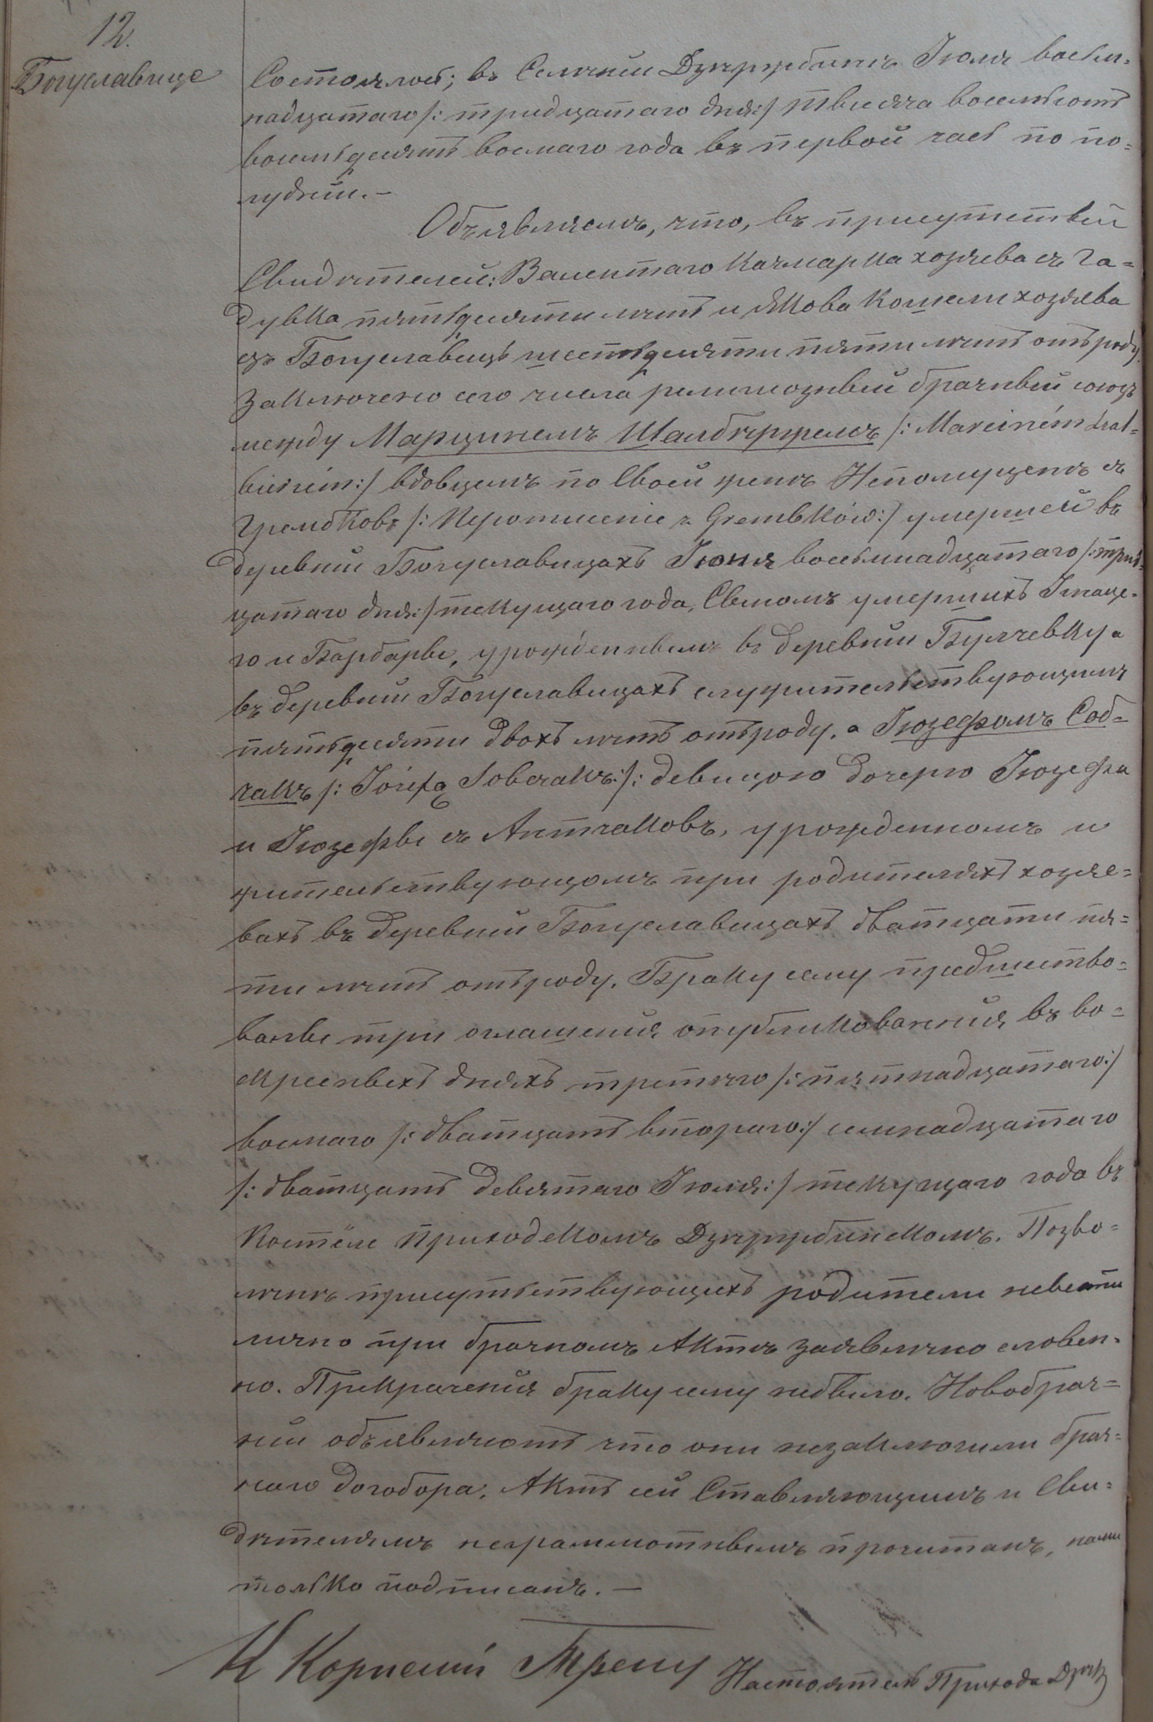 12.
Богуславице
Состоялось; въ Селенiи Дзержбинъ Iюля восем-
надцатаго /: тридцатаго дня:/ тысяча восемьсотъ
восемьдесятъ восмаго года въ первой часъ по по=
лудни. —
Объявляемъ, что, въ присутствiи
Свидѣтелей: Валентаго Качмарка хозяева съ Га=
дувка пятьдесяти лѣтъ и Якова Кошели хозяева
съ Богуславицъ шестьдесяти пяти лѣтъ отъ роду.
Заключено сего числа религiозный брачный союзъ
между Марциномъ Шалбержемъ /: Marcinem Szal-
bierzem:/ вдовцемъ по своей женѣ Непомуценѣ съ
Грембковъ /: Nepomucenie z Grembków:/ умершей въ
деревни Богуславицахъ Iюня восемнадцатаго /:трид-
цатаго дня:/ текущаго года, Сыномъ умершихъ Игнаце-
го и Барбары, урожденнымъ въ деревни Бугчевку а
въ деревни Богуславицахъ служительствующимъ
пятьдесяти двохъ лѣтъ отъ роду. а Iюзефомъ Соб=
чакъ /: Józefą Sobczakъ:/: девицою дочерю Iюзефа
и Iюзефы съ Антчаковъ, урожденномъ и
жительствующомъ при родителяхъ хозяе=
вахъ въ деревни Богуславицахъ дватцати пя=
ти лѣтъ отъ роду. Браку сему предшество=
ваны три оглашенiя опубликованнiя въ во=
скресныхъ дняхъ третяго /: пятнадцатаго:/
восмаго /: дватцать втораго:/ семнадцатаго
/: дватцать девятаго Iюля:/ текущаго года въ
Костёле приходскомъ Дзержбинскомъ. Позво=
ленiе присутствующихъ родители невести
лично при брачномъ Актѣ заявлено словен-
но. Прекраченiя браку сему небыло. Новобрач=
нiи объявляютъ что они незаключили брач=
наго договора. Актъ сей Ставляющимъ и Сви=
дѣтелямъ неграммотнымъ прочитанъ, нами
только подписанъ. —
К Корнелiй Трешу Настоятель Прихода Дзеж